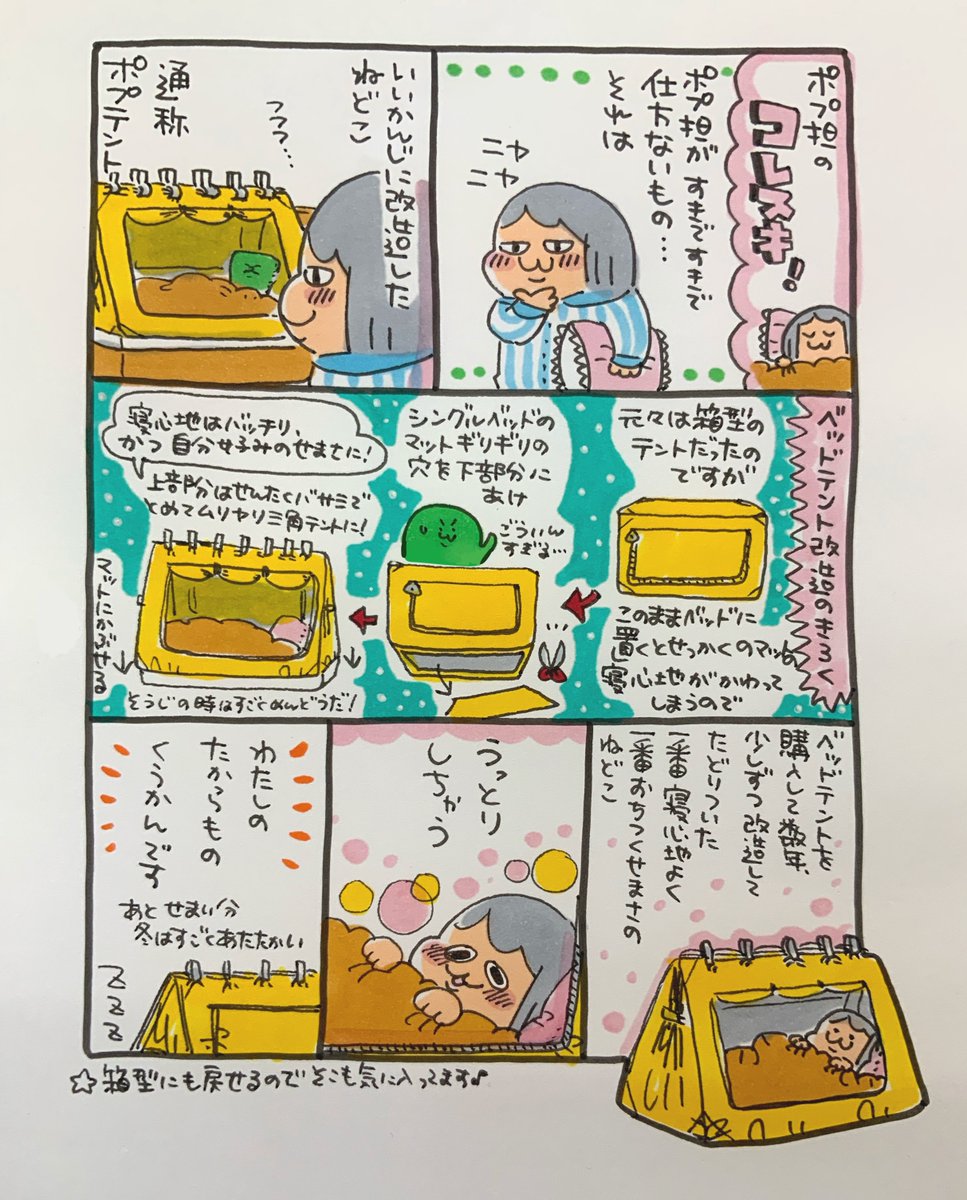 ポプ担の
コレスキ!
ポプ担が すきですきで
仕方ないもの…
それは
ニヤ
ニヤ
いいかんじに改造した
ねどこ
フフフ…
通称
ポプテント
ベッドテント改造のきろく
元々は箱型の
テントだったの
ですが
このままベッドに
置くとせっかくのマットの
寝心地がかわって
しまうので
シングルベッドの
マットギリギリの
穴を下部分に
あけ
ごういん
すぎる…
寝心地はバッチリ、
かつ自分好みのせまさに!
上部分はせんたくバサミで
とめてムリヤリ三角テントに!
マットにかぶせる
そうじの時はすごくめんどうだ!
ベッドテントを
購入して数年、
少しずつ改造して
たどりついた
一番寝心地よく
一番おちつくせまさの
ねどこ
うっとり
しちゃう
わたしの
たからもの
くうかんです
あと せまい分
冬はすごくあたたかい
ZZZ
☆箱型にも戻せるのでそこも気に入ってます♪